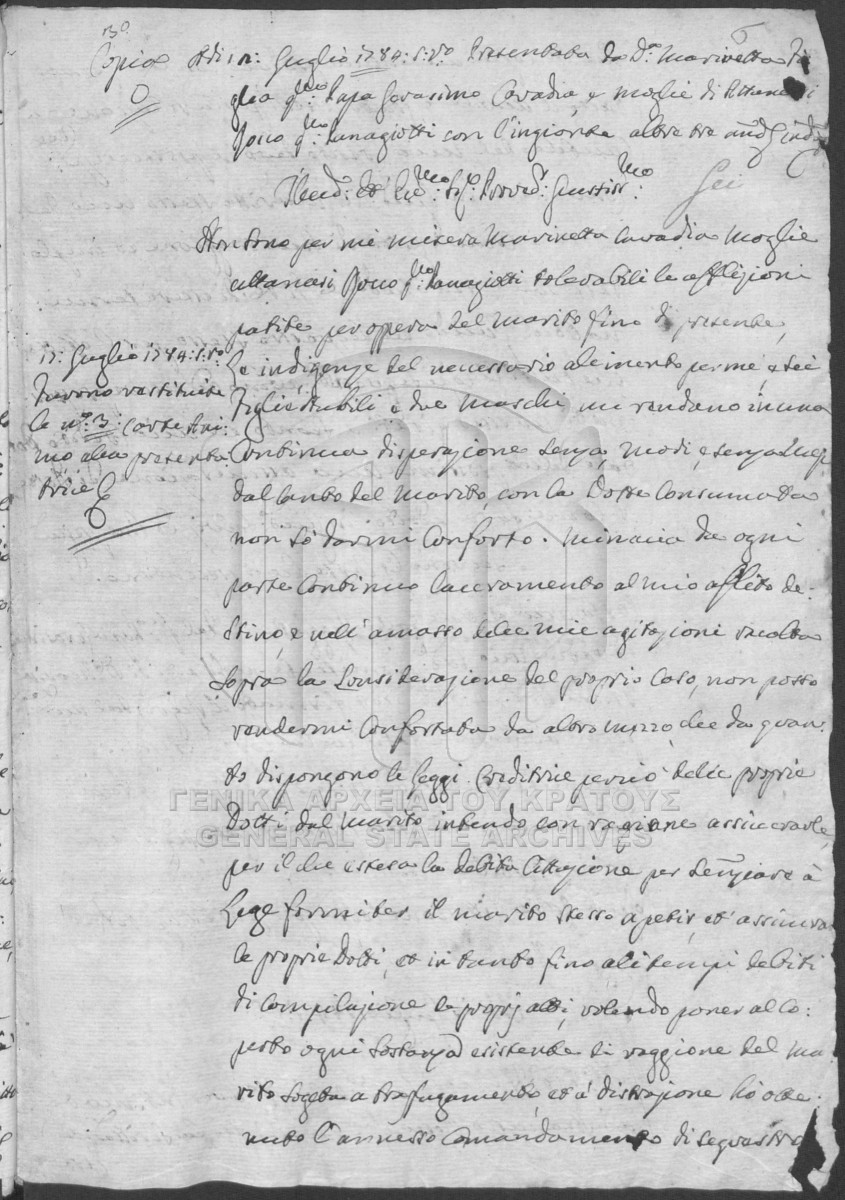 13º
6
Copia Adi 12: Guglio 1784: S: Vº Presentata da Dª Marinetta Fi
glia qm: Papa Gerasimo Cavadia, e moglie di Attanasi
Foco qm: Panagiotti con l'ingionta altre tre
Provedr:
Sei
Non sono per me misera Marinetta Cavadia moglie
Attanasi Foco qm: Panagiotti tolerabili le afflizioni
patite per opera del marito fino di presente,
Le indigenze del necessario alimento per me, e sei
Figlie Nubili e due Maschi mi rendano in una
Continua disperazione senza, modi, e senza
dal canto del Marito, con la Dotte Consumatta
non sò darmi Conforto. Minacia da ogni
parte Continuo laceramento al mio aflito de:
stino, e nell'amasso delle mie agitazioni racolta
sopra la Considerazione del proprio Caso, non posso
rendermi Confortata da altro mezzo, che da quan:
to dispongono le leggi. Creditrice perciò delle proprie
Dotti dal marito intendo con raggione assicurarle,
per il che estesa la debita Cittazione per
Lege formiter il marito stesso a petir, et assicurar
le proprie Dotti, et in tanto fino alli tempi debiti
di Compilazione le proprj atti, volendo poner al Co:
perto ogni sostanza esistente di raggione del ma
rito sogeta a traffugamento, et à distrazione hò otte:
nuto l'annesso Comandamento di sequestro
12: Guglio 1784: S: Vº
Furono restituite
le nº 3: carte
alla presenta:
trice
ΓΕΝΙΚΑ ΑΡΧΕΙΑ ΤΟΥ ΚΡΑΤΟΥΣ
GENERAL STATE ARCHIVES